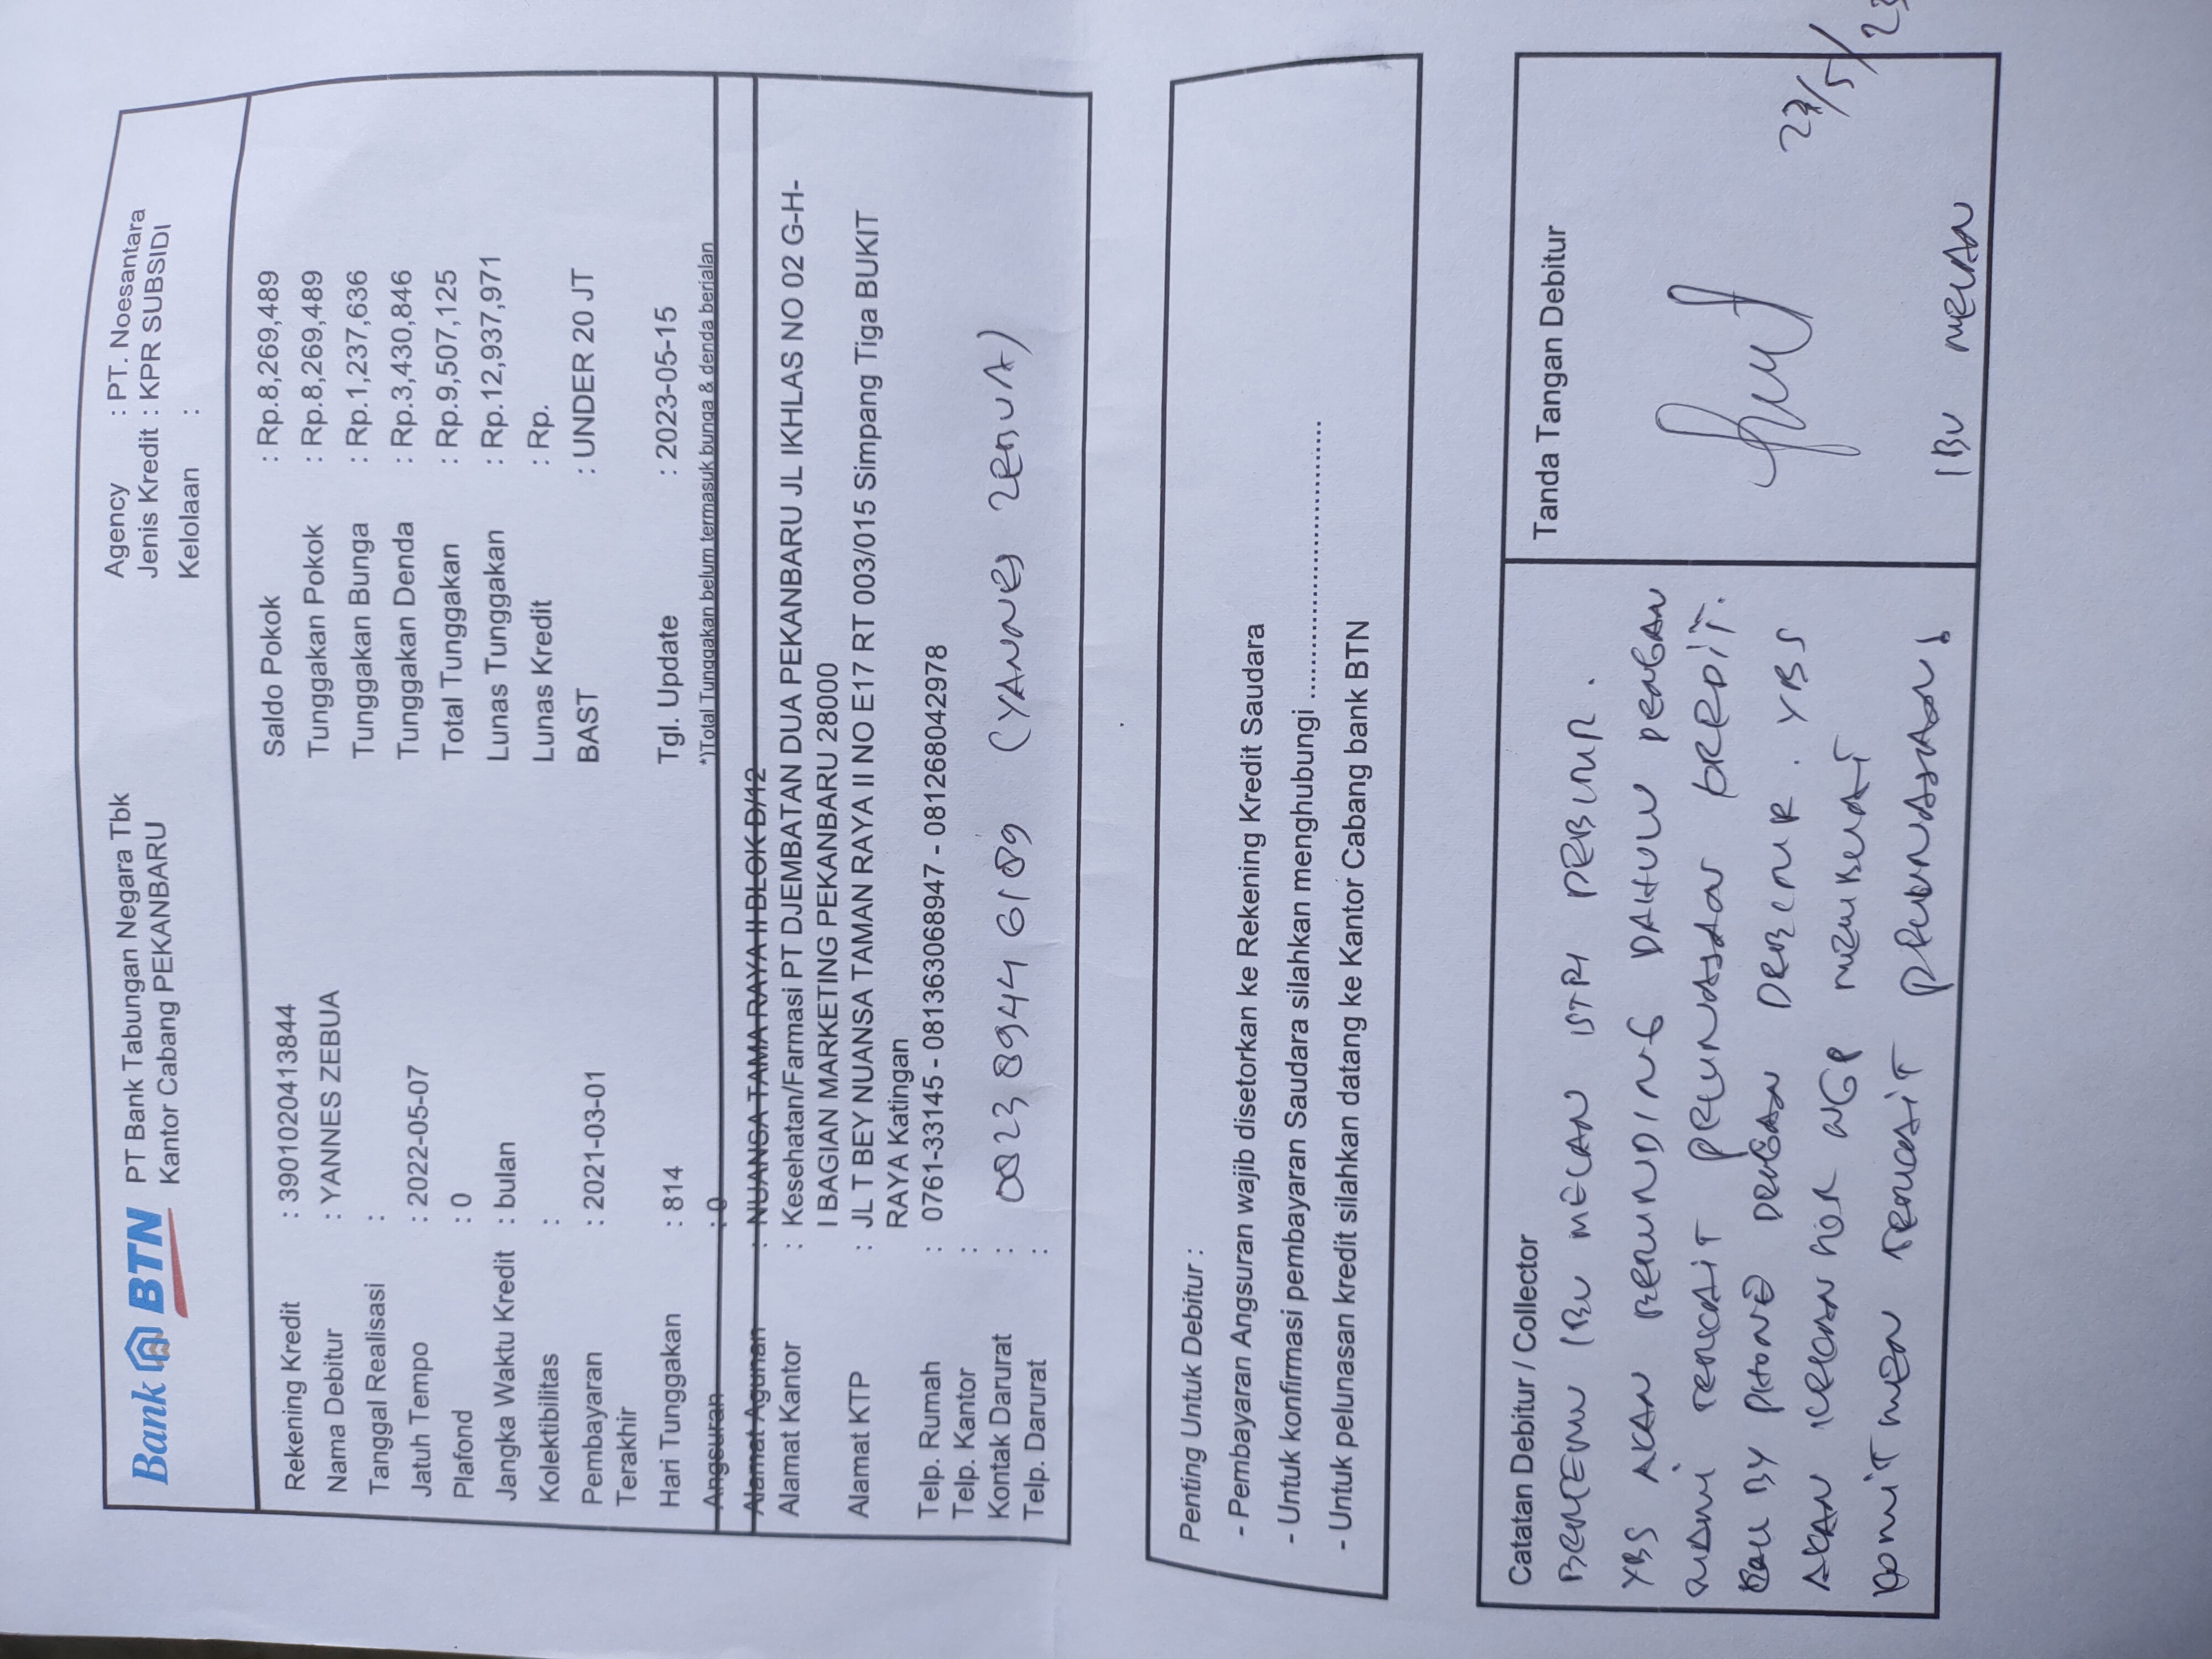 Bank BTN
PT Bank Tabungan Negara Tbk
Kantor Cabang PEKANBARU
Agency : PT. Noesantara
Jenis Kredit : KPR SUBSIDI
Kelolaan :
Rekening Kredit : 3901020413844
Nama Debitur : YANNES ZEBUA
Tanggal Realisasi :
Jatuh Tempo : 2022-05-07
Plafond : 0
Jangka Waktu Kredit : bulan
Kolektibilitas :
Pembayaran : 2021-03-01
Terakhir
Hari Tunggakan : 814
Angsuran : 0
Saldo Pokok : Rp.8,269,489
Tunggakan Pokok : Rp.8,269,489
Tunggakan Bunga : Rp.1,237,636
Tunggakan Denda : Rp.3,430,846
Total Tunggakan : Rp.9,507,125
Lunas Tunggakan : Rp.12,937,971
Lunas Kredit : Rp.
BAST : UNDER 20 JT
Tgl. Update : 2023-05-15
*)Total Tunggakan belum termasuk bunga & denda berjalan
Alamat Agunan : NUANSA TAMA RAYA II BLOK D/12
Alamat Kantor : Kesehatan/Farmasi PT DJEMBATAN DUA PEKANBARU JL IKHLAS NO 02 G-H-
I BAGIAN MARKETING PEKANBARU 28000
Alamat KTP : JL T BEY NUANSA TAMAN RAYA II NO E17 RT 003/015 Simpang Tiga BUKIT
RAYA Katingan
Telp. Rumah : 0761-33145 - 081363068947 - 081268042978
Telp. Kantor :
Kontak Darurat : 0823 8944 6189 (YANNES ZEBUA)
Telp. Darurat :
Penting Untuk Debitur :
- Pembayaran Angsuran wajib disetorkan ke Rekening Kredit Saudara
- Untuk konfirmasi pembayaran Saudara silahkan menghubungi ..............................
- Untuk pelunasan kredit silahkan datang ke Kantor Cabang bank BTN
Catatan Debitur / Collector
BERTEMU IBU ISTRI DEBITUR.
YBS AKAN BERUNDING DAHULU DENGAN
SUAMI TERKAIT PELUNASAN KREDIT.
BY PHONE DENGAN DEBITUR. YBS
AKAN
KOMITMEN TERKAIT PELUNASAN!
Tanda Tangan Debitur
IBU